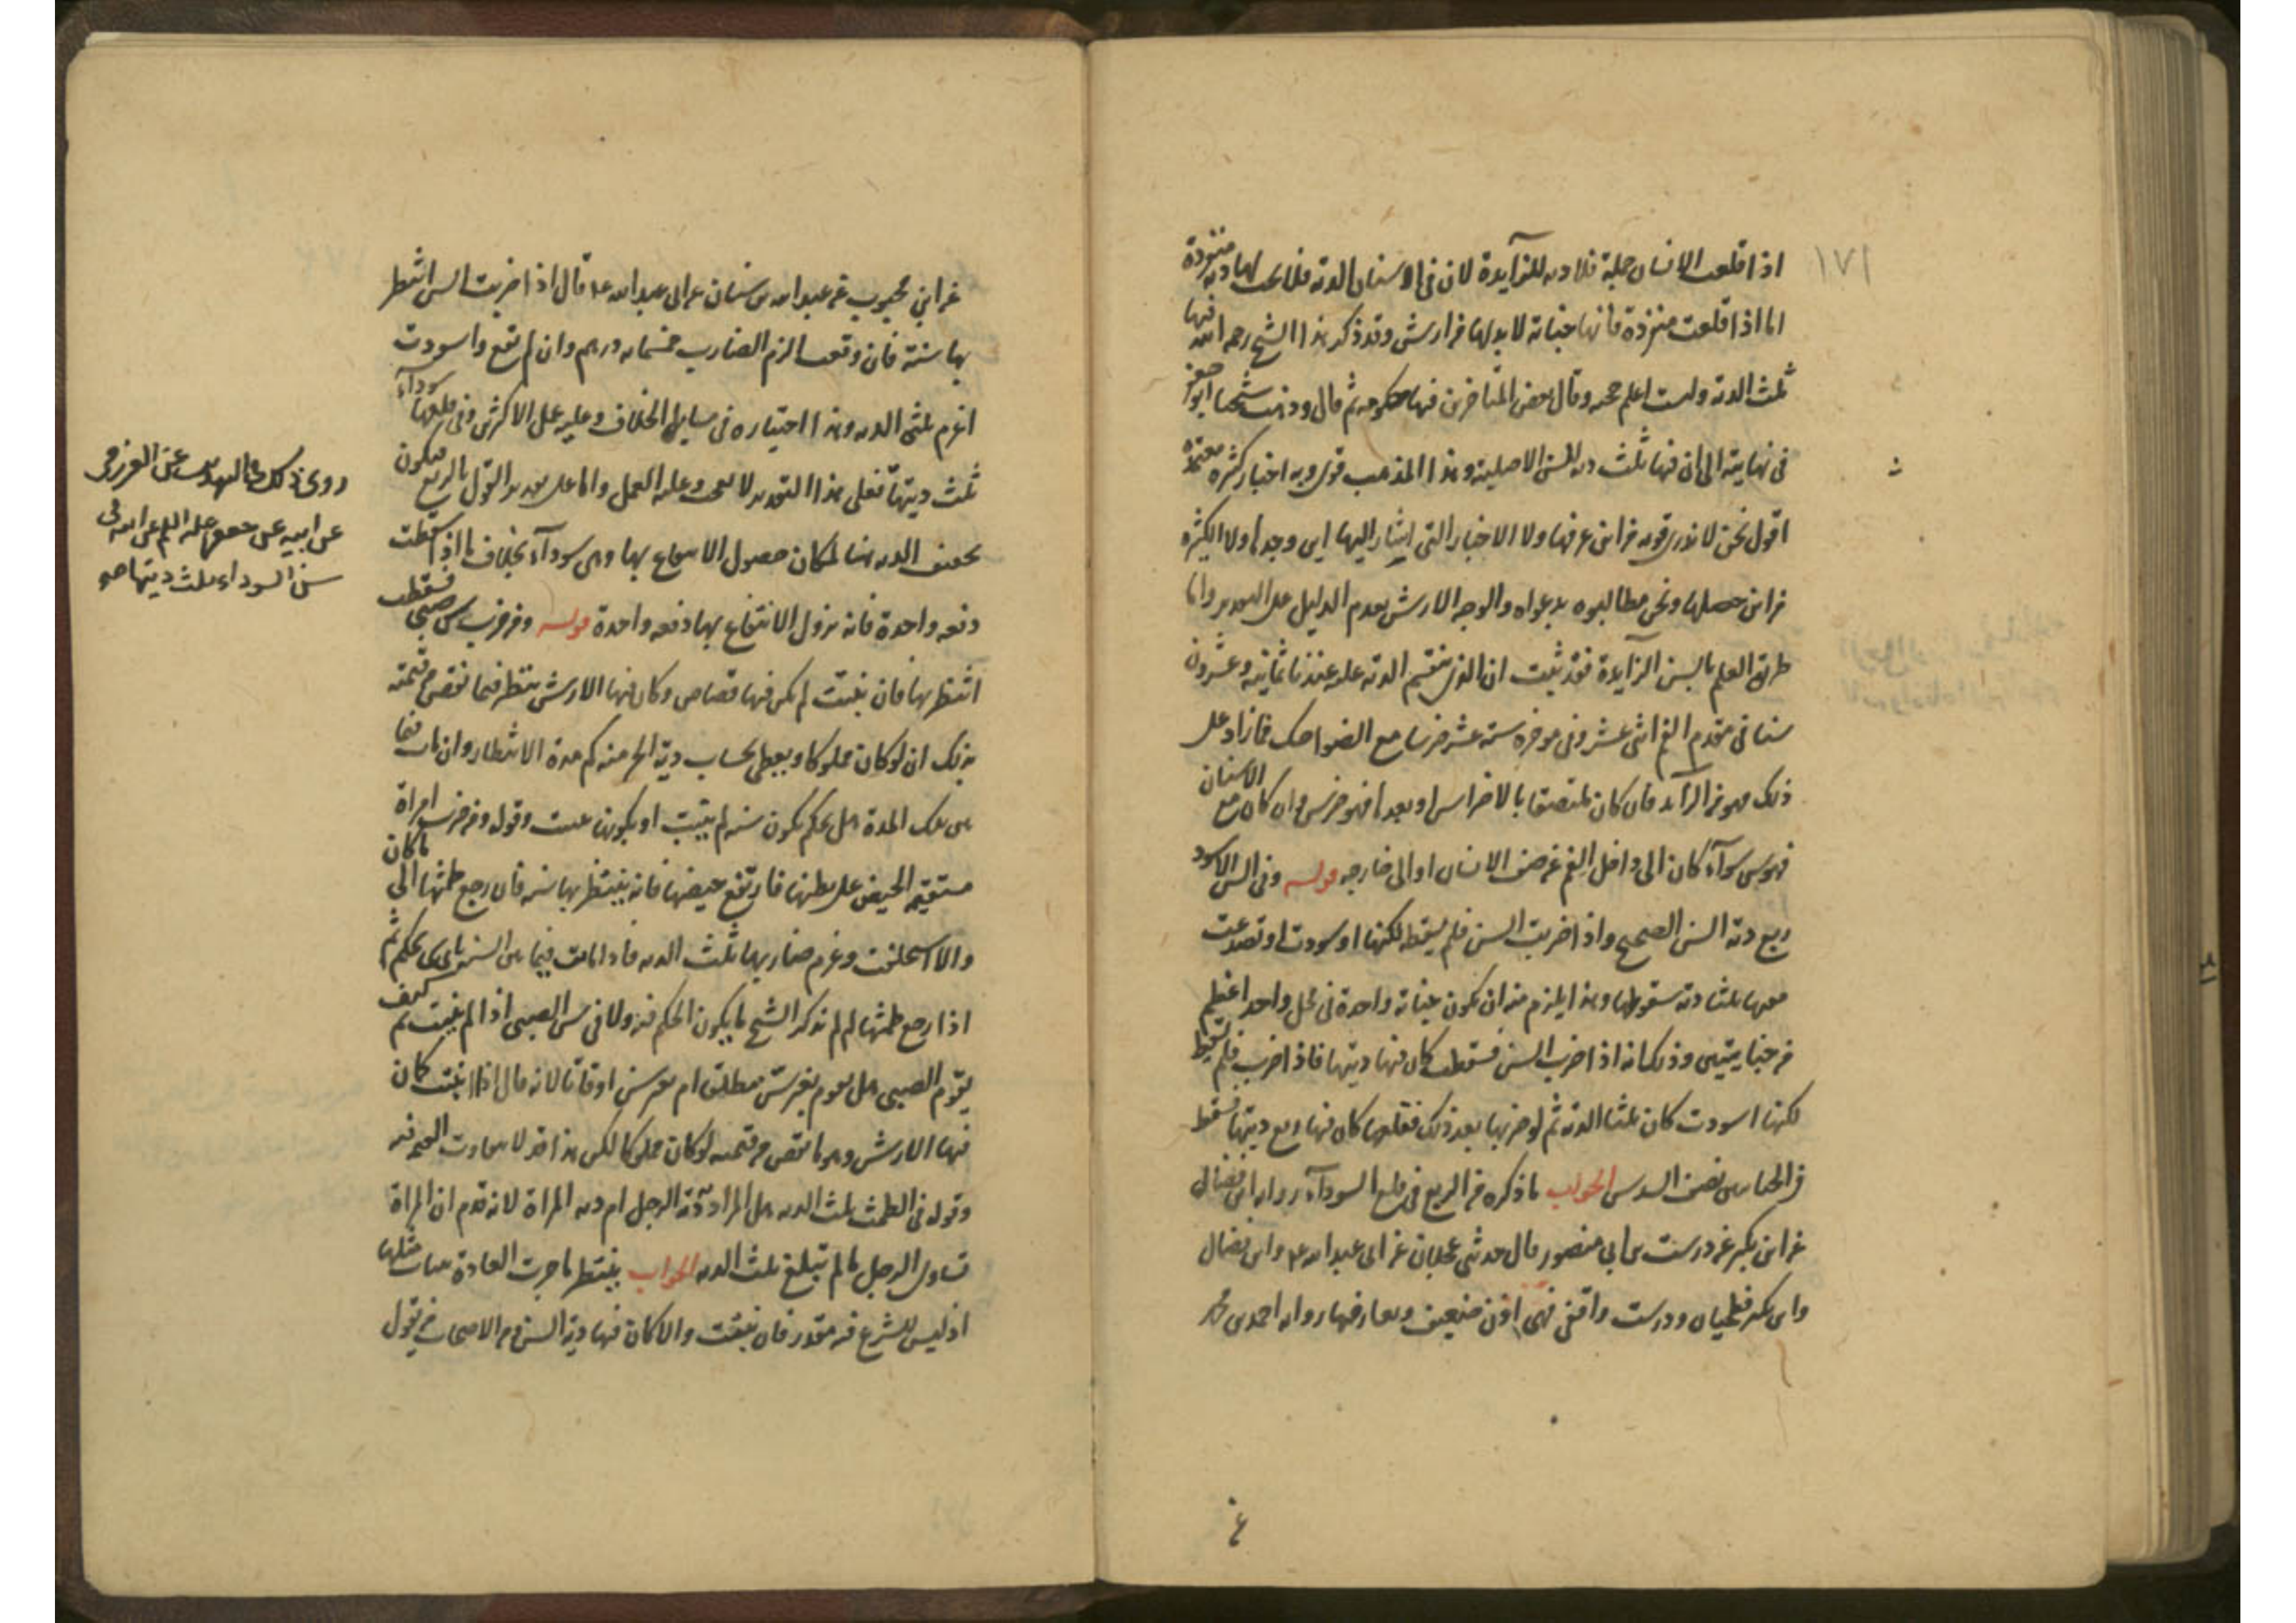 ١٧١
اذا قلعت الاسنان جملة فلا دية للزايدة لان في الاسنان الدية فلا يجب لها دية منفردة
اما اذا قلعت منفردة فانها جناية لابد لها من ارش وقد ذكر هذا الشيخ رحمه الله فيها
ثلث الدية ولست اعلم حجته وقال بعض المتاخرين فيها حكومة ثم قال وذهب شيخنا ابو جعفر
في نهايته الى ان فيها ثلث دية السن الاصلية وهذا المذهب قوى وبه اخبار كثيرة معتمدة
اقول نحن لا ندرى قوته من اين عرفها ولا الاخبار التي اشار اليها اين وجدها ولا الكثرة
من اين حصلها ونحن مطالبوه بدعواه والوجه الارش لعدم الدليل على التقدير واما
طريق العلم بالسن الزايدة فقد ثبت ان الذى يقسم الدية عليه عندنا ثمانية وعشرون
سنا في مقدم الفم اثنى عشر وفي موخره ستة عشر ضرسا مع الضواحك فما زاد على
ذلك فهو من الزايد فان كان ملتصقا بالاضراس او بعدها فهو ضرس وان كان مع الاسنان
فهو سن سوآء كان الى داخل الفم عن صف الاسنان او الى خارجه قوله وفي السن الاسود
ربع دية السن الصحيح واذا ضربت السن فلم يسقط لكنها اسودت او تصدعت
ففيها ثلثا دية سقوطها وهذا يلزم منه ان يكون جناية واحدة في محل واحد اعظم
من جنايتين وذلك انه اذا ضرب السن فسقطت كان فيها ديتها فاذا ضرب فلم يسقط
لكنها اسودت كان ثلثا الدية ثم لو ضربها بعد ذلك فقلعها كان فيها ربع ديتها فسقط
من الجنايتين نصف السدس الجواب ما ذكره من الربع في قلع السودآء رواه ابن فضال
عن ابن بكير عن درست بن ابي منصور قال حدثني عجلان عن ابي عبد الله ع وابن فضال
وابن بكير فطحيان ودرست واقفي فهى اذن ضعيفة ويعارضها رواية احمد بن محمد
عن
عن ابن محبوب عن عبد الله بن سنان عن ابي عبد الله ع قال اذا ضربت السن انتظر
بها سنة فان وقعت الزم الضارب خمسمائة درهم وان لم تقع واسودت
اغرم ثلثى الدية وهذا اختياره في مسايل الخلاف وعليه عمل الاكثر وفي قلعها سودآء
ثلث ديتها فعلى هذا التقدير وعليه العمل واما على تقدير القول بالربع فيكون
الدية هنا لمكان حصول الانتفاع بها وهى سودآء بخلاف ما اذا سقطت
دفعه واحدة فانه يزول الانتفاع بها دفعه واحدة قوله ومن ضرب سن صبي فسقطت
انتظر بها فان نبتت لم يكن فيها قصاص وكان فيها الارش ينظر فيما نقص من قيمته
بذلك ان لو كان مملوكا ويعطى بحساب دية الحر منه كم مدة الانتظار وان مات فيما
بين تلك المدة هل يحكم بكون سنه لم ينبت او بكونها نبتت وقوله ومن ضرب امراة
مستقيمة الحيض على بطنها فارتفع حيضها فانه ينتظر بها سنه فان رجع طمثها الى ما كان
والا استحلفت وغرم ضاربها ثلث الدية فاذا ماتت فيما بين السنة باى شى يحكم ثم
اذا رجع طمثها لم لم يذكر الشيخ ما يكون الحكم فيه ولا في سن الصبي اذا لم ينبت ثم كيف
يقوم الصبي هل يقوم بغير سن مطلقا ام بغير سن اوقاتا لانه قال اذا نبتت كان
فيها الارش وهو ما نقص من قيمته لو كان مملوكا لكن هذا قد لا يتفاوت القيمة فيه
وقوله في الطمث ثلث الدية هل المراد دية الرجل ام دية المراة لانه قدم ان المراة
تساوى الرجل ما لم تبلغ ثلث الدية الجواب ينتظر ما جرت العادة بنبات مثلها
اذ ليس للشرع فيه مقدر فان نبتت والا كان فيها دية السن ومن الاصحاب من يقول
روى ذلك في التهذيب عن العرزمى
عن ابيه عن جعفر عليه السلم عن ابيه في
سن السوداء ثلث ديتها صح